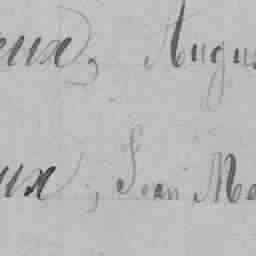 eux, Augus
ux, Jean Ma